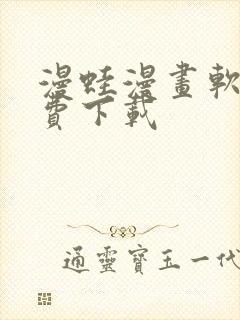 漫蛙漫畫軟
費下載
通靈寶玉一代